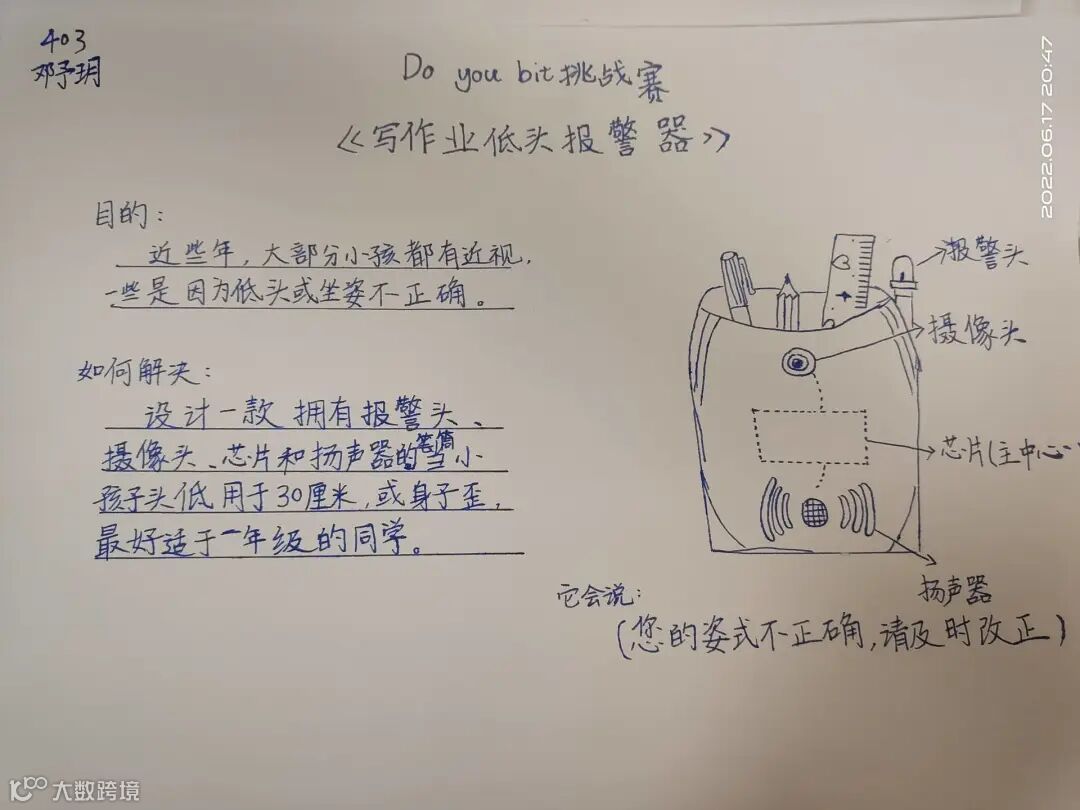 403
邓予玥
Do you bit挑战赛
《写作业低头报警器》
目的：
近些年，大部分小孩都有近视，
一些是因为低头或坐姿不正确。
如何解决：
设计一款 拥有报警头、
摄像头、芯片和扬声器的笔筒。当小
孩子头低用于30厘米，或身子歪，
最好适于一年级的同学。
报警头
摄像头
芯片(主中心)
扬声器
它会说：
(您的姿式不正确，请及时改正)
2022.06.17 20:47
大数跨境